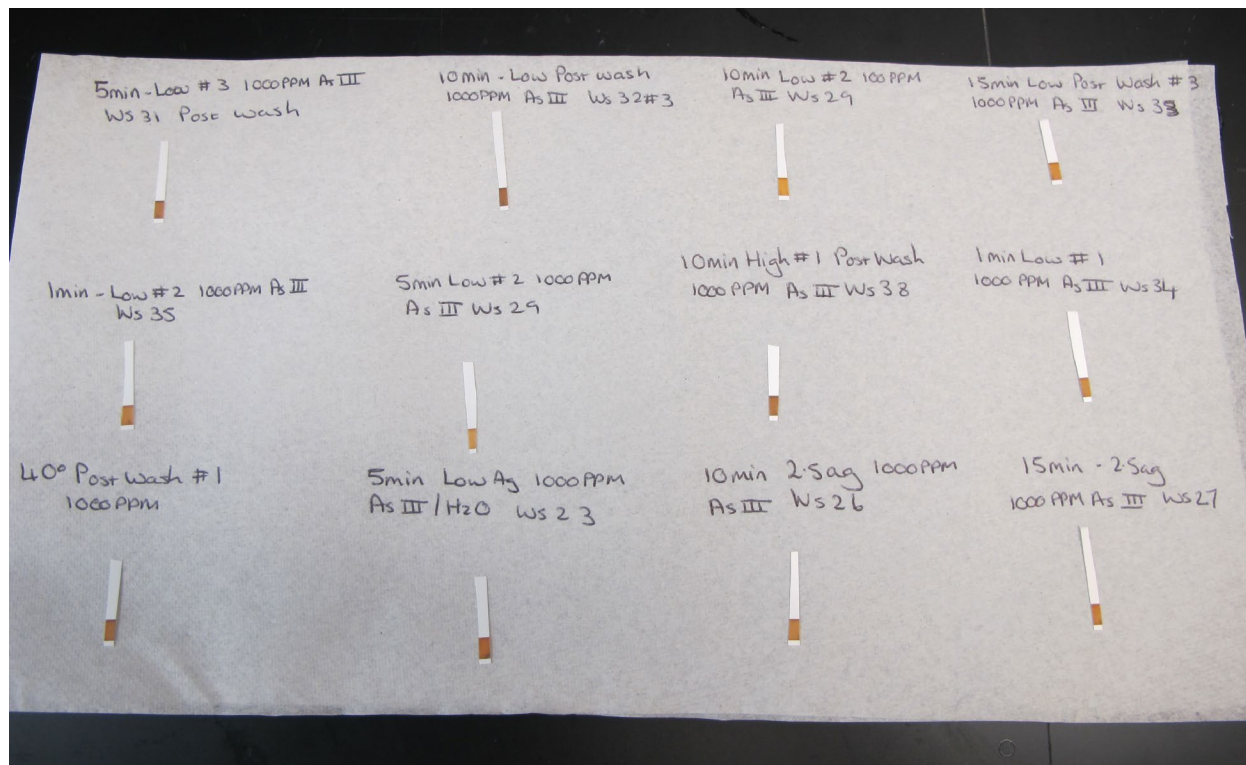 5min - Low # 3 1000PPM As III
Ws 31 Post wash
10min - Low Post wash
1000PPM As III Ws 32#3
10min Low #2 100PPM
As III Ws 29
15min Low Post Wash # 3
1000PPM As III Ws 33
1min - Low #2 1000PPM As III
Ws 35
5min Low # 2 1000PPM
As III Ws 29
10min High #1 Post Wash
1000 PPM As III Ws 38
1min Low # 1
1000 PPM As III Ws 34
40° Post Wash # 1
1000PPM
5min Low Ag 1000PPM
As III / H2O Ws 23
10min 2.5ag 1000PPM
As III Ws 26
15min - 2.5ag
1000PPM As III Ws 27